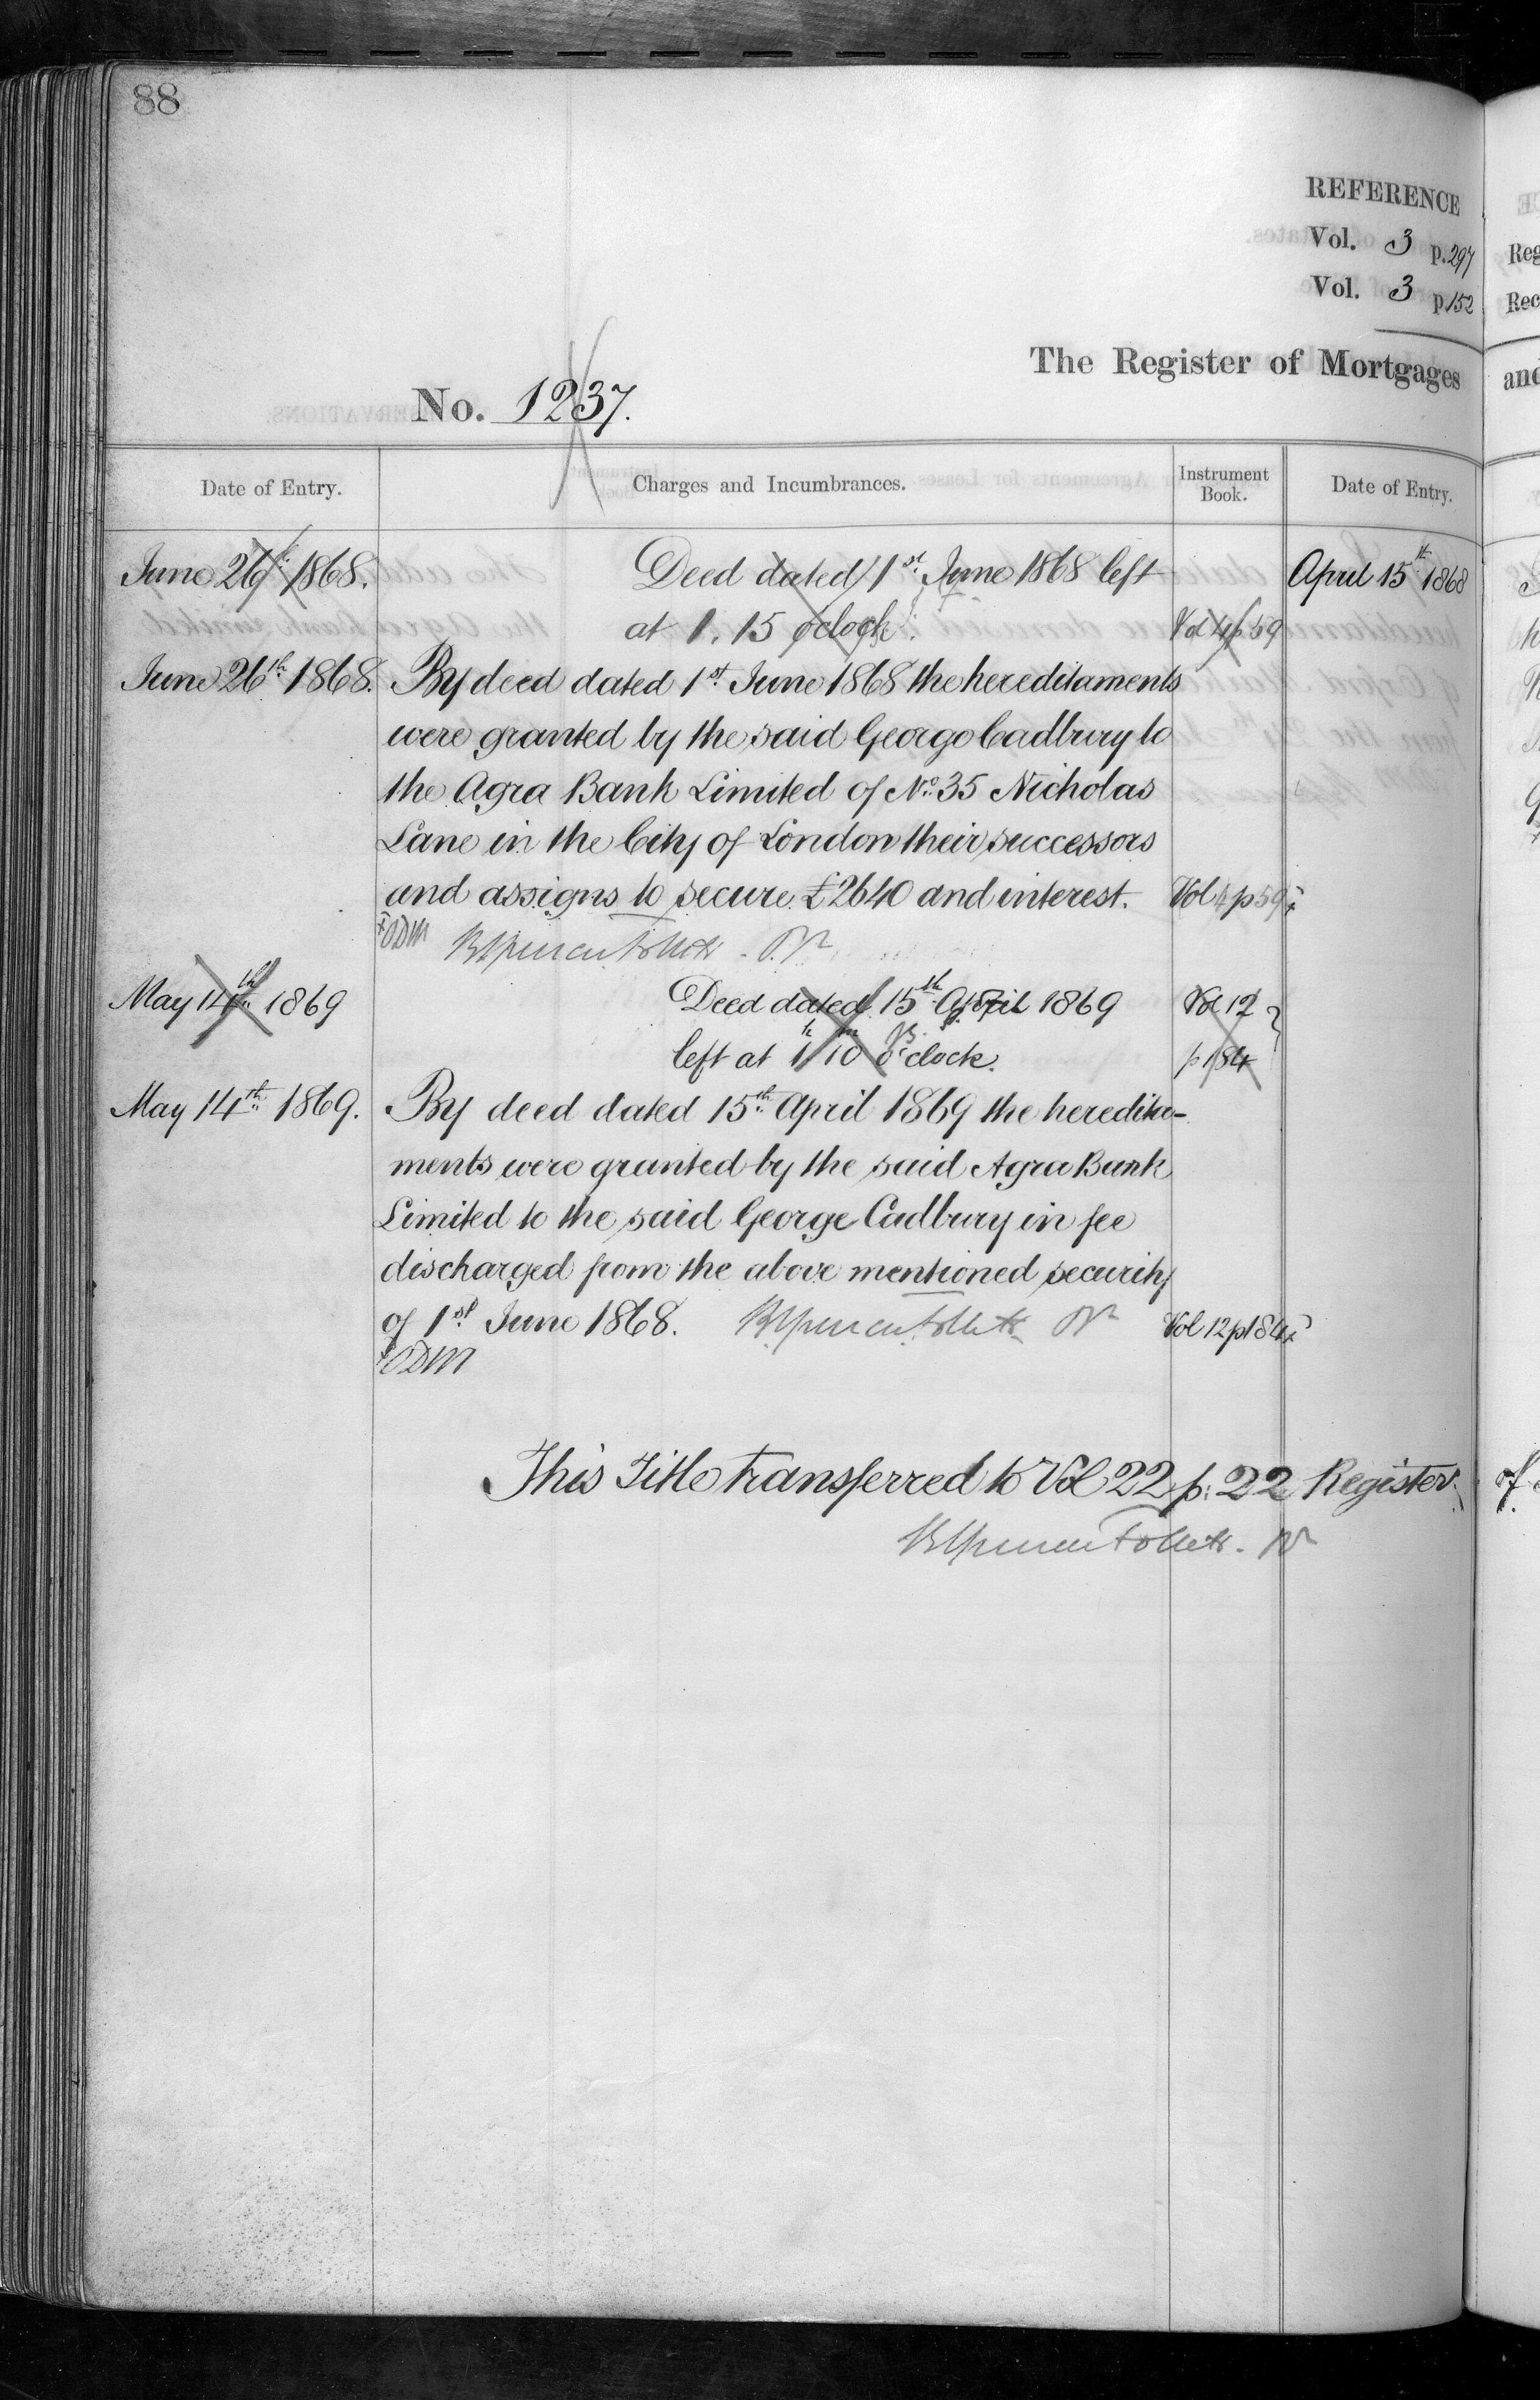 88
REFERENCE
Vol. 3 p.297
Vol. 3 p152
The Register of Mortgages
No. 1237.
Date of Entry.
Charges and Incumbrances.
Instrument Book.
Date of Entry.
June 26th 1868.
Deed dated 1st June 1868 left
April 15th 1868
at 1.15 o'clock.
Vol 4 p 59
June 26th 1868.
By deed dated 1st June 1868 the hereditaments
were granted by the said George Cadbury to
the Agra Bank Limited of No. 35 Nicholas
Lane in the City of London their successors
and assigns to secure £2640 and interest.
Vol 4 p 59
ODM
May 14th 1869
Deed dated 15th April 1869
Vol 12
left at 1h 10m o'clock.
p 184
May 14th 1869.
By deed dated 15th April 1869 the heredita-
ments were granted by the said Agra Bank
Limited to the said George Cadbury in fee
discharged from the above mentioned security
of 1st June 1868.
Vol 12 p 184
ODM
This Title transferred to Vol 22 p. 22 Register
of
Reg
Rec
and